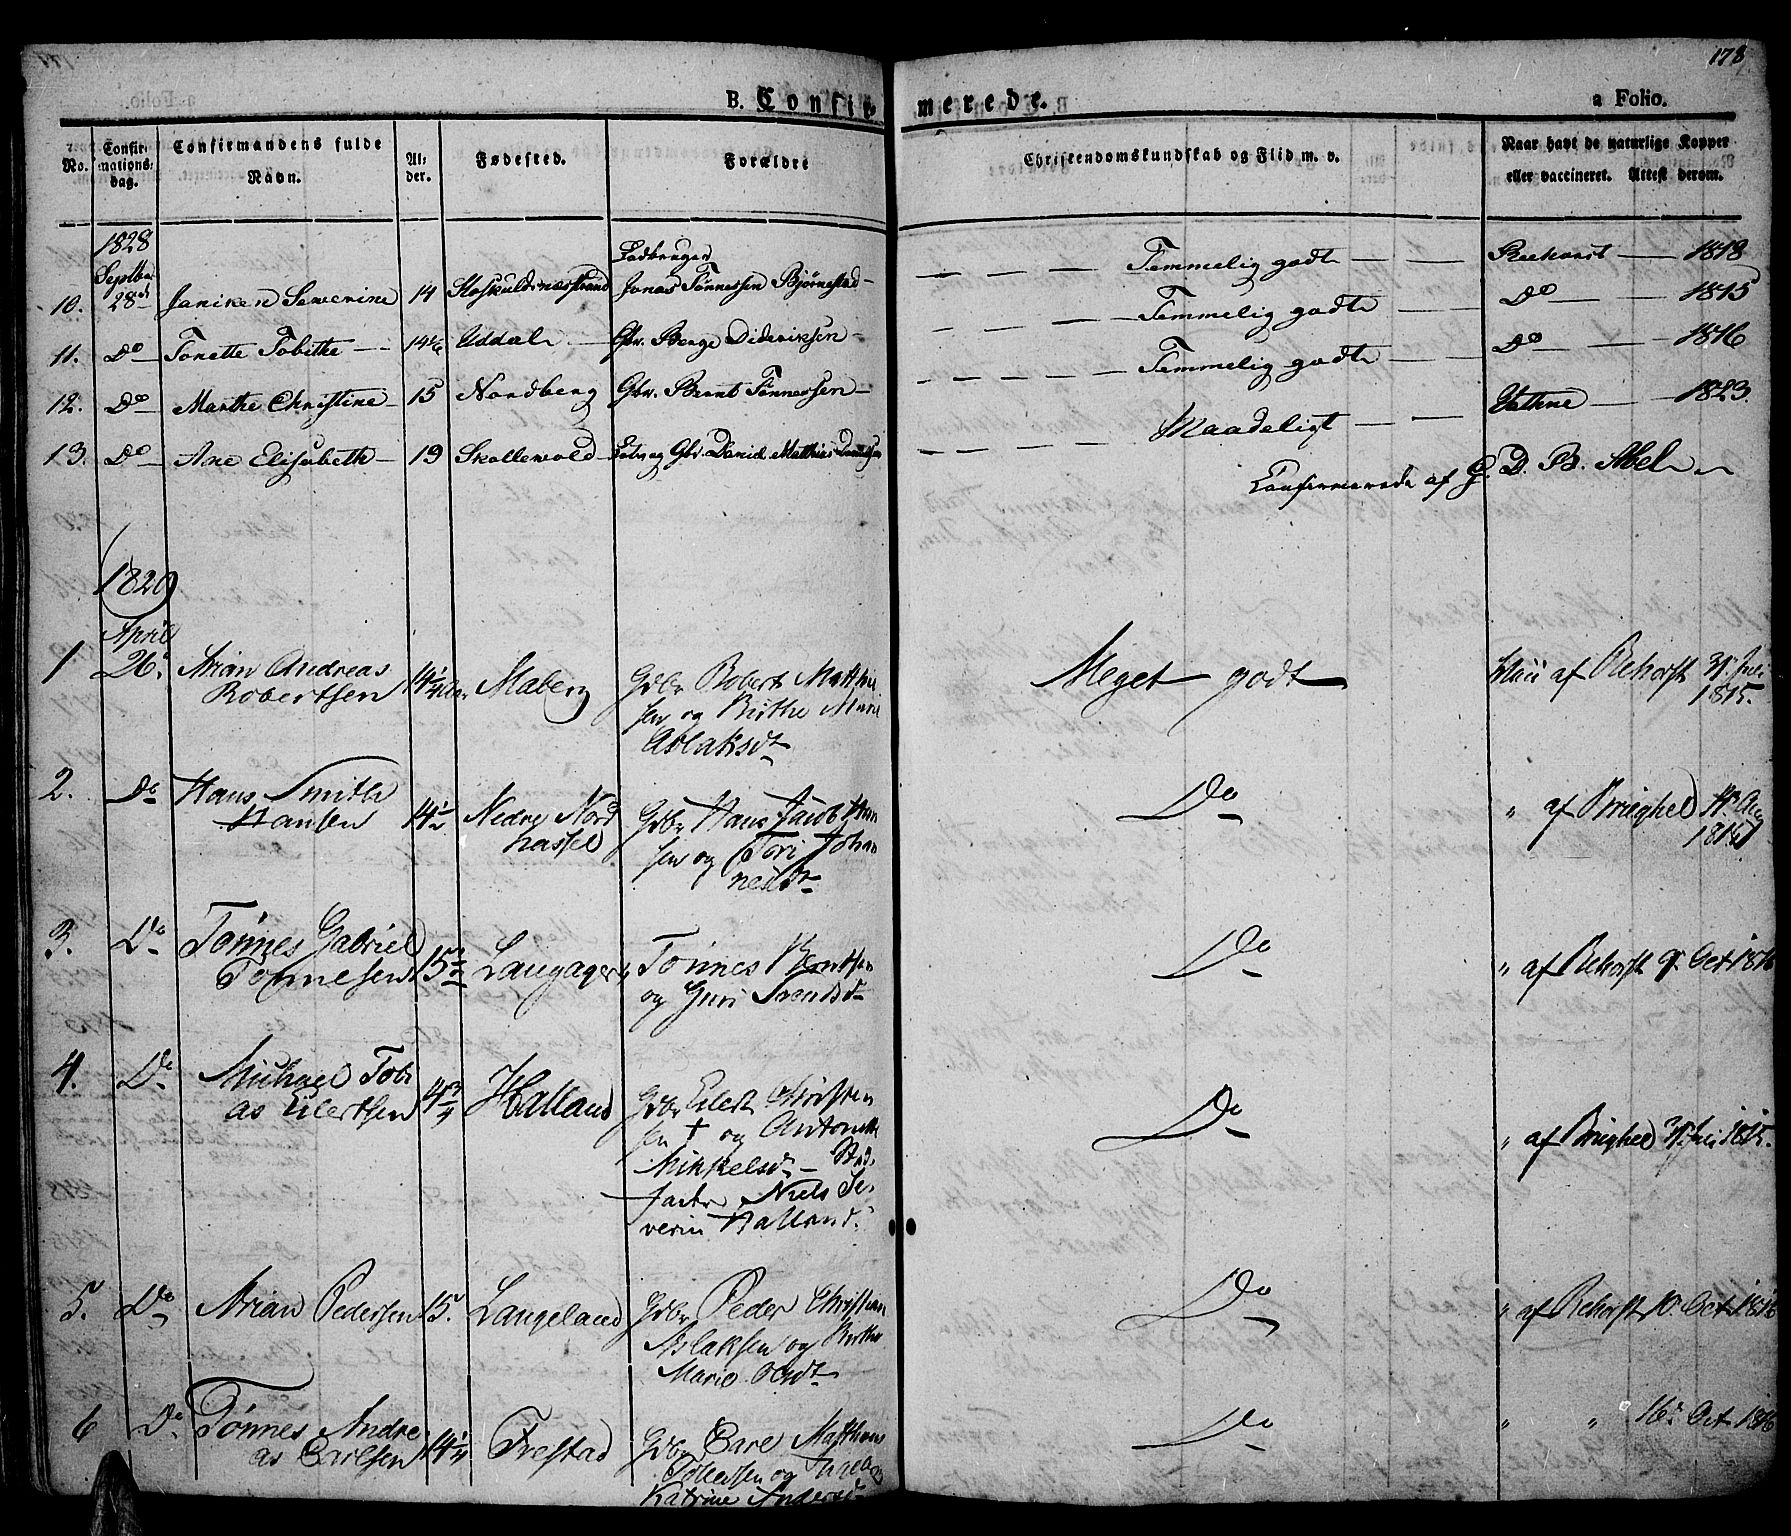 178
B. Confirmerede.
a Folio.
No.
Confirmationsdag.
Confirmandens fulde Navn.
Alder.
Fødested.
Forældre
Christendomskundskab og Flid m. v.
Naar havt de naturlige Kopper eller vaccineret. Attest derom.
1828
Septbr
10. 28de Janiken Severine 14 Ladbruger Jonas Tønnessen Bjørnestad — Temmelig godt — Rehorst — 1818
11. Do — Tonette Tobithe — 14½ Uddal — Gbr. Berge Dideriksen — Temmelig godt — Do — 1815
12. Do — Marthe Christine — 15 Nordberg Gbr. Bernt Tønnessen — Temmelig godt — Do — 1816
13. Do — Ane Elisabeth — 19 Skollevold — og Gbr. Daniel Mathias Maadeligt — Vathne — 1823.
Confirmerede af G. D. B. Abel
1829
April
1 26. Arian Andreas
Robertsen 14¼ Aar Maberg Gdbr Robert Matthi
sen og Birthe Mari
Aslaksdt Meget godt af Rehorst 31. Juli
1815.
2. Do Hans Smith
Hansen 14½ Nedre Nord
hassel Gdbr Hans Jacob Han
sen og Tori Johan
nesdt Do " af Brughel
3. Do Tønnes Gabriel
Tønnesen Langager Tønnes Berntsen
og Guri Svendsdt Do " af Rehorst 9. Oct 1816
4. Do Michael Tobi
as Eilertsen 14¾ Halland Gdbr Eilert Christen
sen † og Antonette
Mikkelsdt —
fader Niels Se
verin Halland. Do " af Brughel 31. Juli 1815.
5. Do Arian Pedersen 15. Langeland Gdbr Peder Christian
Aslaksen og Birthe
Marie Olsdt Do " af Rehorst 10. Oct 1816
6 Do Tønnes Andre
as Carlsen 14¼ Frestad Gdbr Carl Matthias
Tollefsen og Ingeborg
Katrine Andersdt Do " " 16. Oct 1816